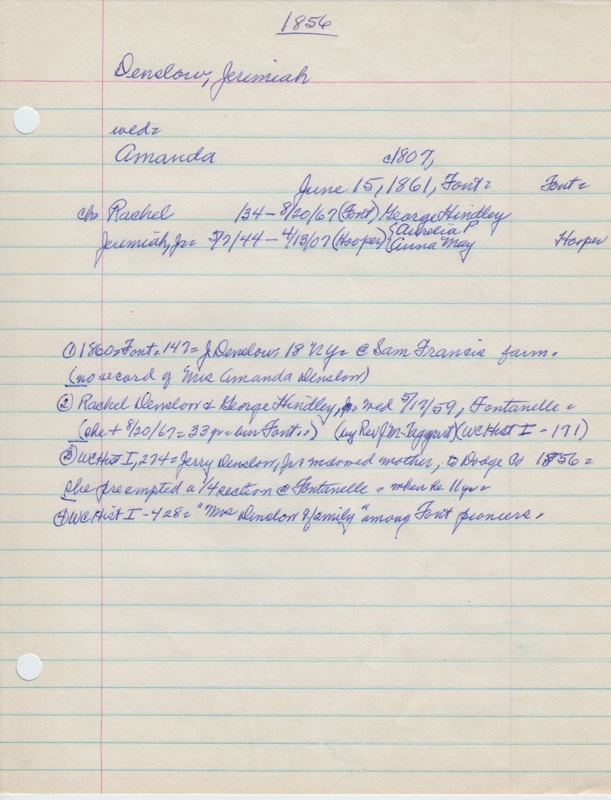 1856
Denslow, Jerimiah
wed=
Amanda c1807,
June 15, 1861, Font= Font=
ch= Rachel /34 - 8/20/67 (Font) George Hindley
Jeremiah, Jr= 5/7/44 - 4/13/07 (Hooper) {Aurelia P
{Anna May Hooper
① 1860= Font= 147= J. Denslow, 18 NY= @ Sam Francis farm.
(no record of Mrs Amanda Denslow)
② Rachel Denslow & George Hindley, wed 5/17/59, Fontanelle=
(she + 8/20/67= 33 yr= Font.) (by Rev J.M. Taggart) (WCHist I - 171)
③ WCHist I, 274= Jerry Denslow, Jr & widowed mother, to Dodge Co 1856=
she preempted a 1/4 section @ Fontinelle= when he 11 yr=
④ WCHist I - 428= "Mrs Denslow & family" among Font pioneers.